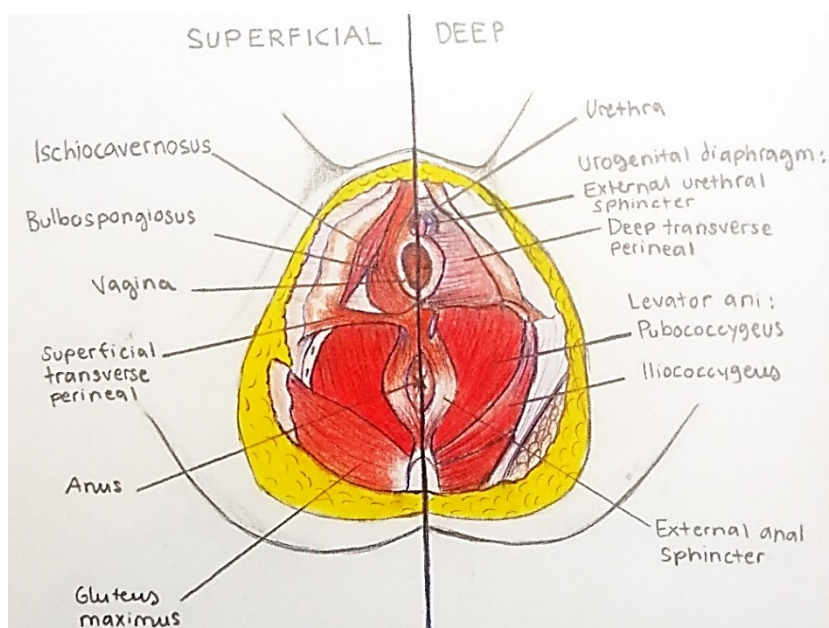 SUPERFICIAL
DEEP
Ischiocavernosus
Bulbospongiosus
Vagina
Superficial
transverse
perineal
Anus
Gluteus
maximus
Urethra
Urogenital diaphragm:
External urethral
sphincter
Deep transverse
perineal
Levator ani:
Pubococcygeus
Iliococcygeus
External anal
sphincter